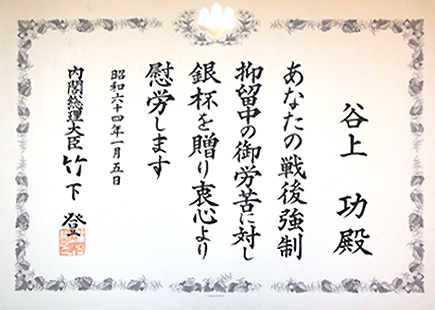 谷上 功殿
あなたの戦後強制
抑留中の御労苦に対し
銀杯を贈り衷心より
慰労します
昭和六十四年一月五日
内閣総理大臣 竹下 登